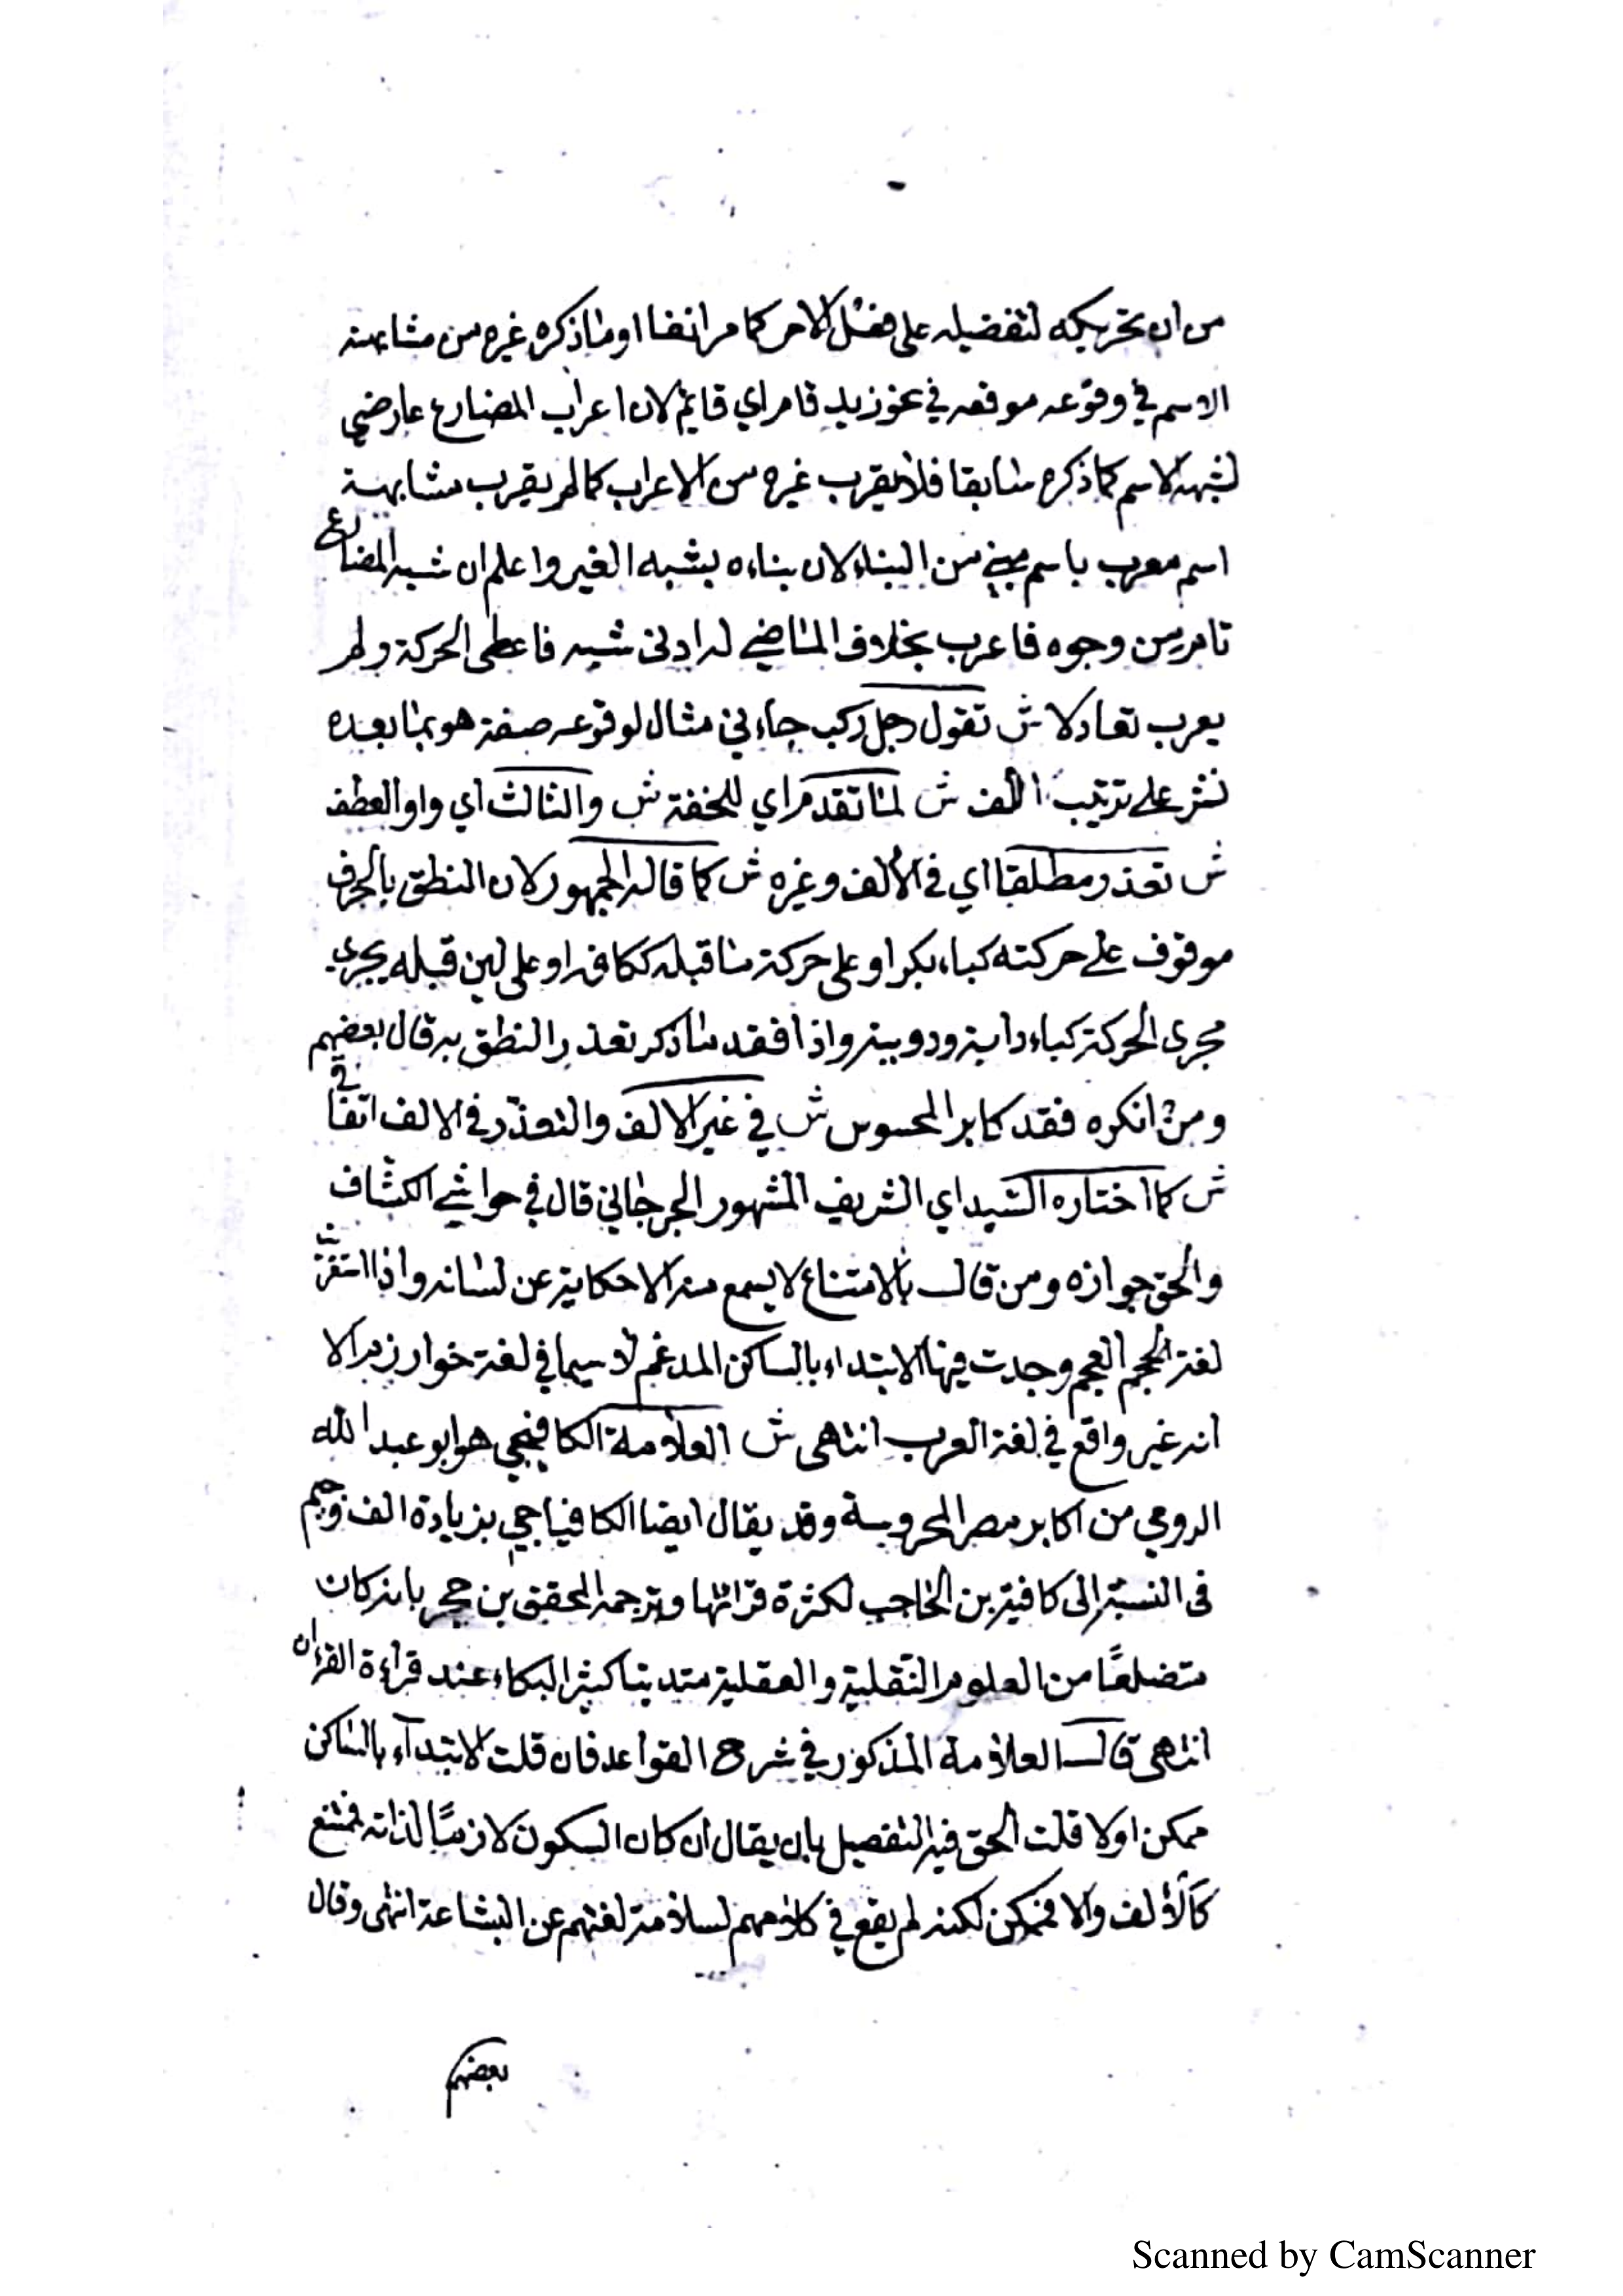 من ان تحريكه لتفضيله على فعل الامر كما مر انفا او ما ذكره غيره من مشابهته
الاسم في وقوعه موقعه في نحو زيد قام اي قائم لان اعراب المضارع عارضي
لشبهه الاسم كما ذكره سابقا فلا يقرب غيره من الاعراب كما لم يقرب مشابهة
اسم معرب باسم مبني من البناء لان بناءه بشبه الغير واعلم ان شبه المضارع
تام من وجوه فاعرب بخلاف الماضي له ادنى شبه فاعطى الحركة ولم
يعرب تعادلا ش تقول رجل ركب جاءني مثال لوقوعه صفة هو بما بعده
نشر على ترتيب اللف ش لما تقدم اي للخفة ش والثالث اي واو العطف
ش تعذر مطلقا اي في الألف وغيره ش كما قاله الجمهور لان النطق بالحرف
موقوف على حركته كباء بكر او على حركة ما قبله ككافه او على لين قبله يجري
مجرى الحركة كباء دابة ودويبة واذا فقد ما ذكر تعذر النطق به قال بعضهم
ومن انكره فقد كابر المحسوس ش في غير الالف والتعذر في الالف اتفاقي
ش كما اختاره السيد اي الشريف المشهور الجرجاني قال في حواشي الكشاف
والحق جوازه ومن قال بالامتناع لا يسمع منه الا حكاية عن لسانه واذا استقريت
لغة العجم العجم وجدت فيها الابتداء بالساكن المدغم لا سيما في لغة خوارزم الا
انه غير واقع في لغة العرب انتهى ش العلامة الكافيجي هو ابو عبد الله
الرومي من اكابر مصر المحروسة وقد يقال ايضا الكافياجي بزيادة الف وجيم
فى النسبة الى كافية بن الحاجب لكثرة قرائتها وترجمه المحقق بن حجر بانه كان
متضلعًا من العلوم النقلية والعقلية متدينا كثير البكاء عند قراءة القرءان
انتهى قال العلامة المذكور في شرح القواعد فان قلت الابتداء بالساكن
ممكن او لا قلت الحق فيه التفصيل بان يقال ان كان السكون لازمًا لذاته فممتنع
كالألف والا فممكن لكنه لم يقع في كلامهم لسلامة لغتهم عن البشاعة انتهى وقال
بعضهم
Scanned by CamScanner